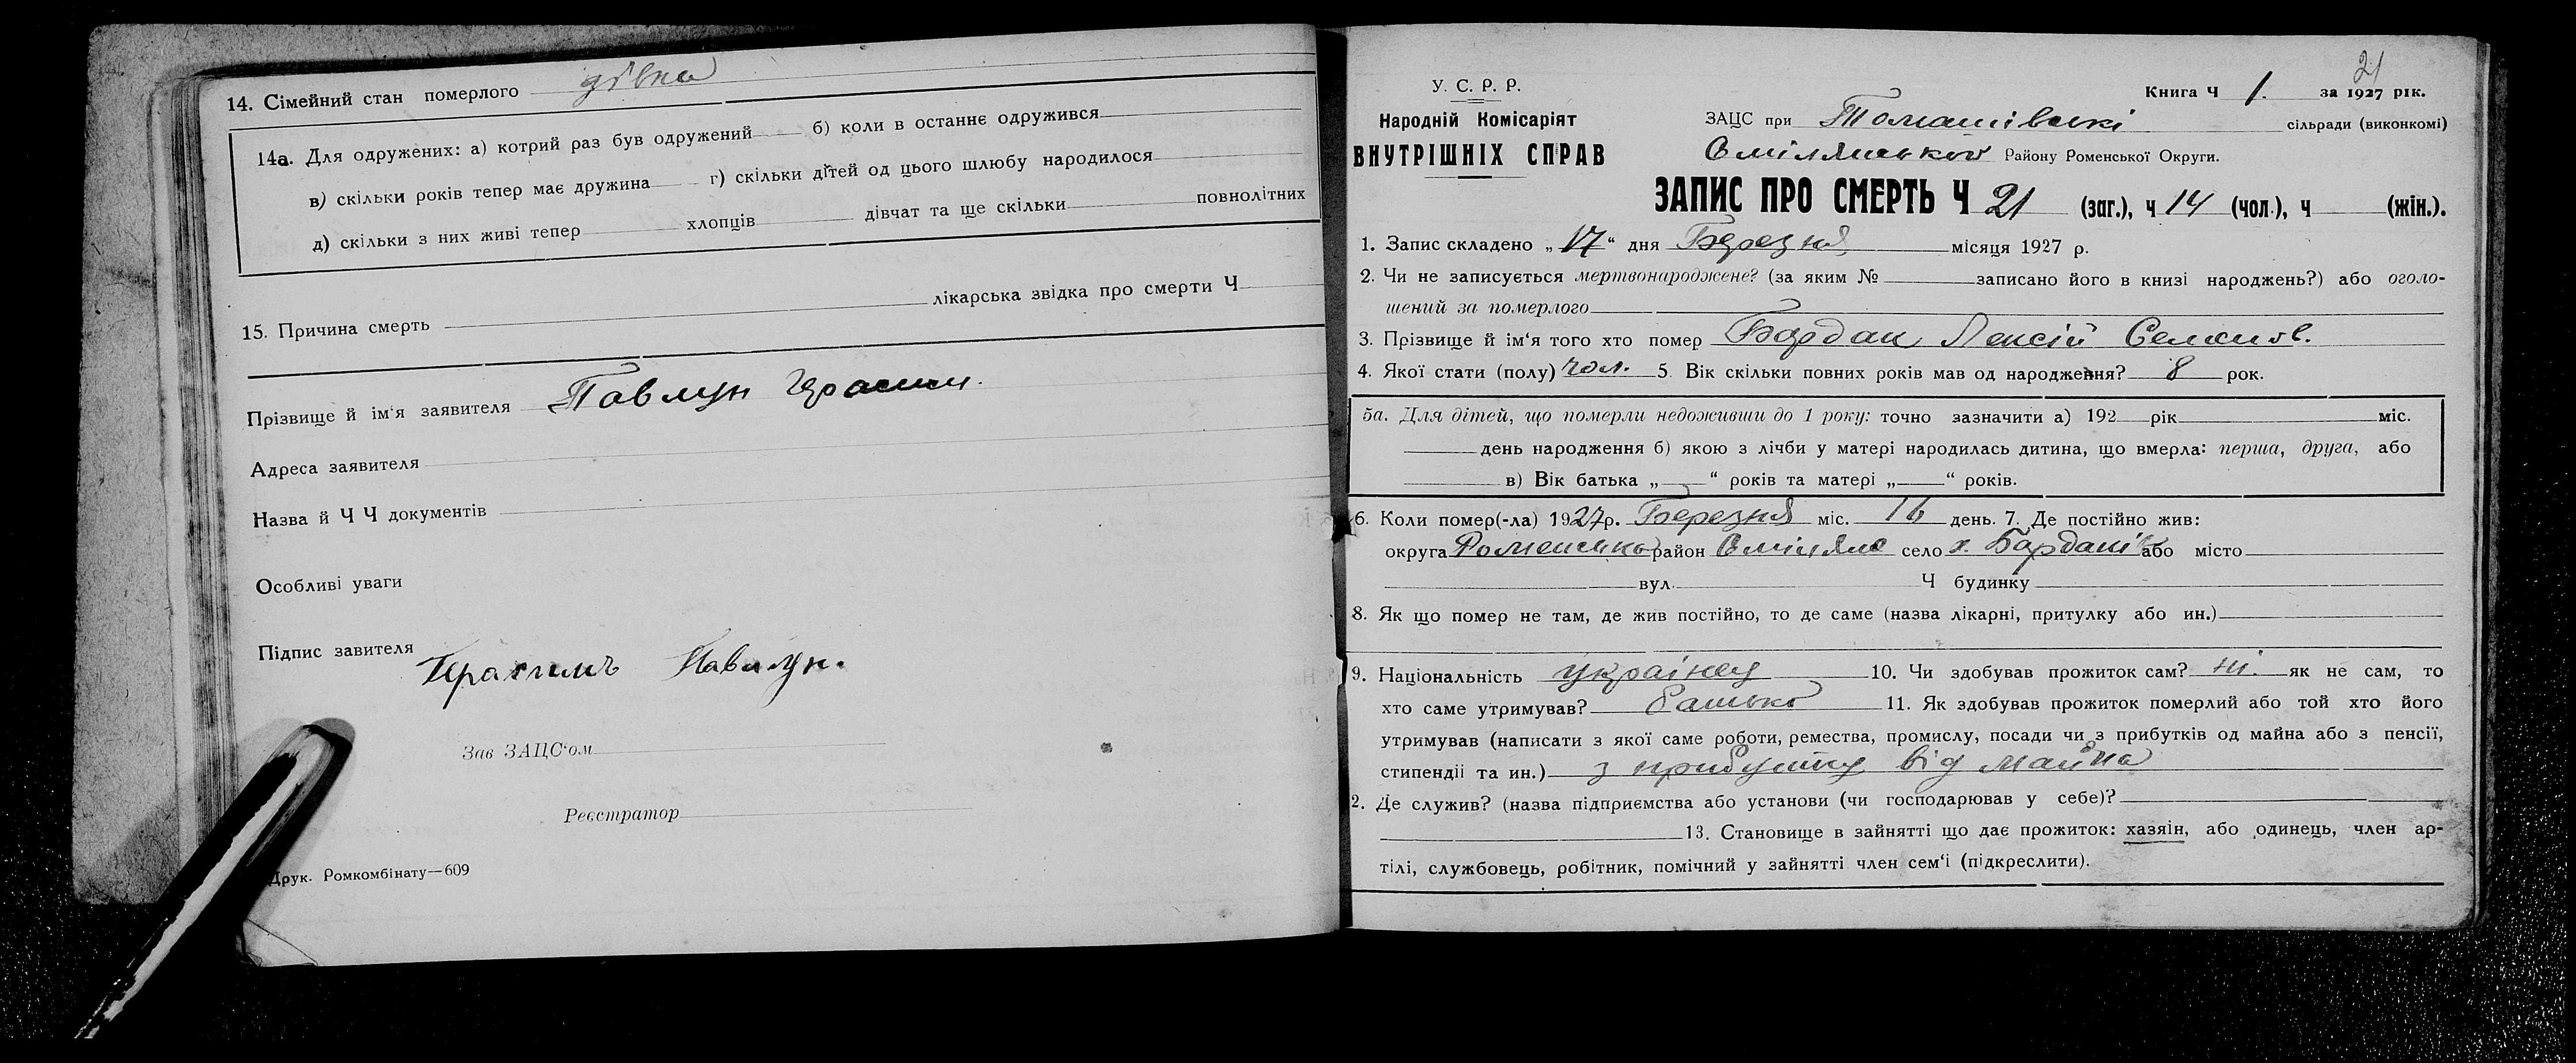 14. Сімейний стан померлого дівка
14а. Для одружених: а) котрий раз був одружений б) коли в останнє одружився
в) скільки років тепер має дружина г) скільки дітей од цього шлюбу народилося
д) скільки з них живі тепер хлопців дівчат та ще скільки повнолітних
15. Причина смерть лікарська звідка про смерти Ч
Прізвище й ім'я заявителя Павлун Герасим.
Адреса заявителя
Назва й Ч Ч документів
Особливі уваги
Підпис завителя Герасимъ Павлун.
Зав ЗАЦС'ом
Реєстратор
Друк. Ромкомбінату—609
21
У. С. Р. Р.
Народній Комісаріят
ВНУТРІШНІХ СПРАВ
Книга Ч 1. за 1927 рік.
ЗАЦС при Томашівські сільради (виконкомі)
Смілянської Району Роменської Округи.
ЗАПИС ПРО СМЕРТЬ Ч 21 (заг.), ч 14 (чол.), ч (жін.).
1. Запис складено „17“ дня Березня місяця 1927 р.
2. Чи не записується мертвонароджене? (за яким № записано його в книзі народжень?) або оголо-
шений за померлого
3. Прізвище й ім'я того хто помер Бардак Лексій Семенов.
4. Якої стати (полу) чол. 5. Вік скільки повних років мав од народження? 8 рок.
5а. Для дітей, що померли недоживши до 1 року: точно зазначити а) 192 рік міс.
день народження б) якою з лічби у матері народилась дитина, що вмерла: перша, друга, або
в) Вік батька „ “ років та матері „ “ років.
6. Коли помер(-ла) 1927р. Березня міс. 16 день. 7. Де постійно жив:
округа Роменська район Смілянс село х. Бардаків або місто
вул. Ч будинку
8. Як що помер не там, де жив постійно, то де саме (назва лікарні, притулку або ин.)
9. Національність українец 10. Чи здобував прожиток сам? ні. як не сам, то
хто саме утримував? батько 11. Як здобував прожиток померлий або той хто його
утримував (написати з якої саме роботи, ремества, промислу, посади чи з прибутків од майна або з пенсії,
стипендії та ин.) з прибутку від майна
2. Де служив? (назва підприємства або установи (чи господарював у себе)?
13. Становище в зайнятті що дає прожиток: хазяін, або одинець, член ар-
тілі, службовець, робітник, помічний у зайнятті член сем'ї (підкреслити).